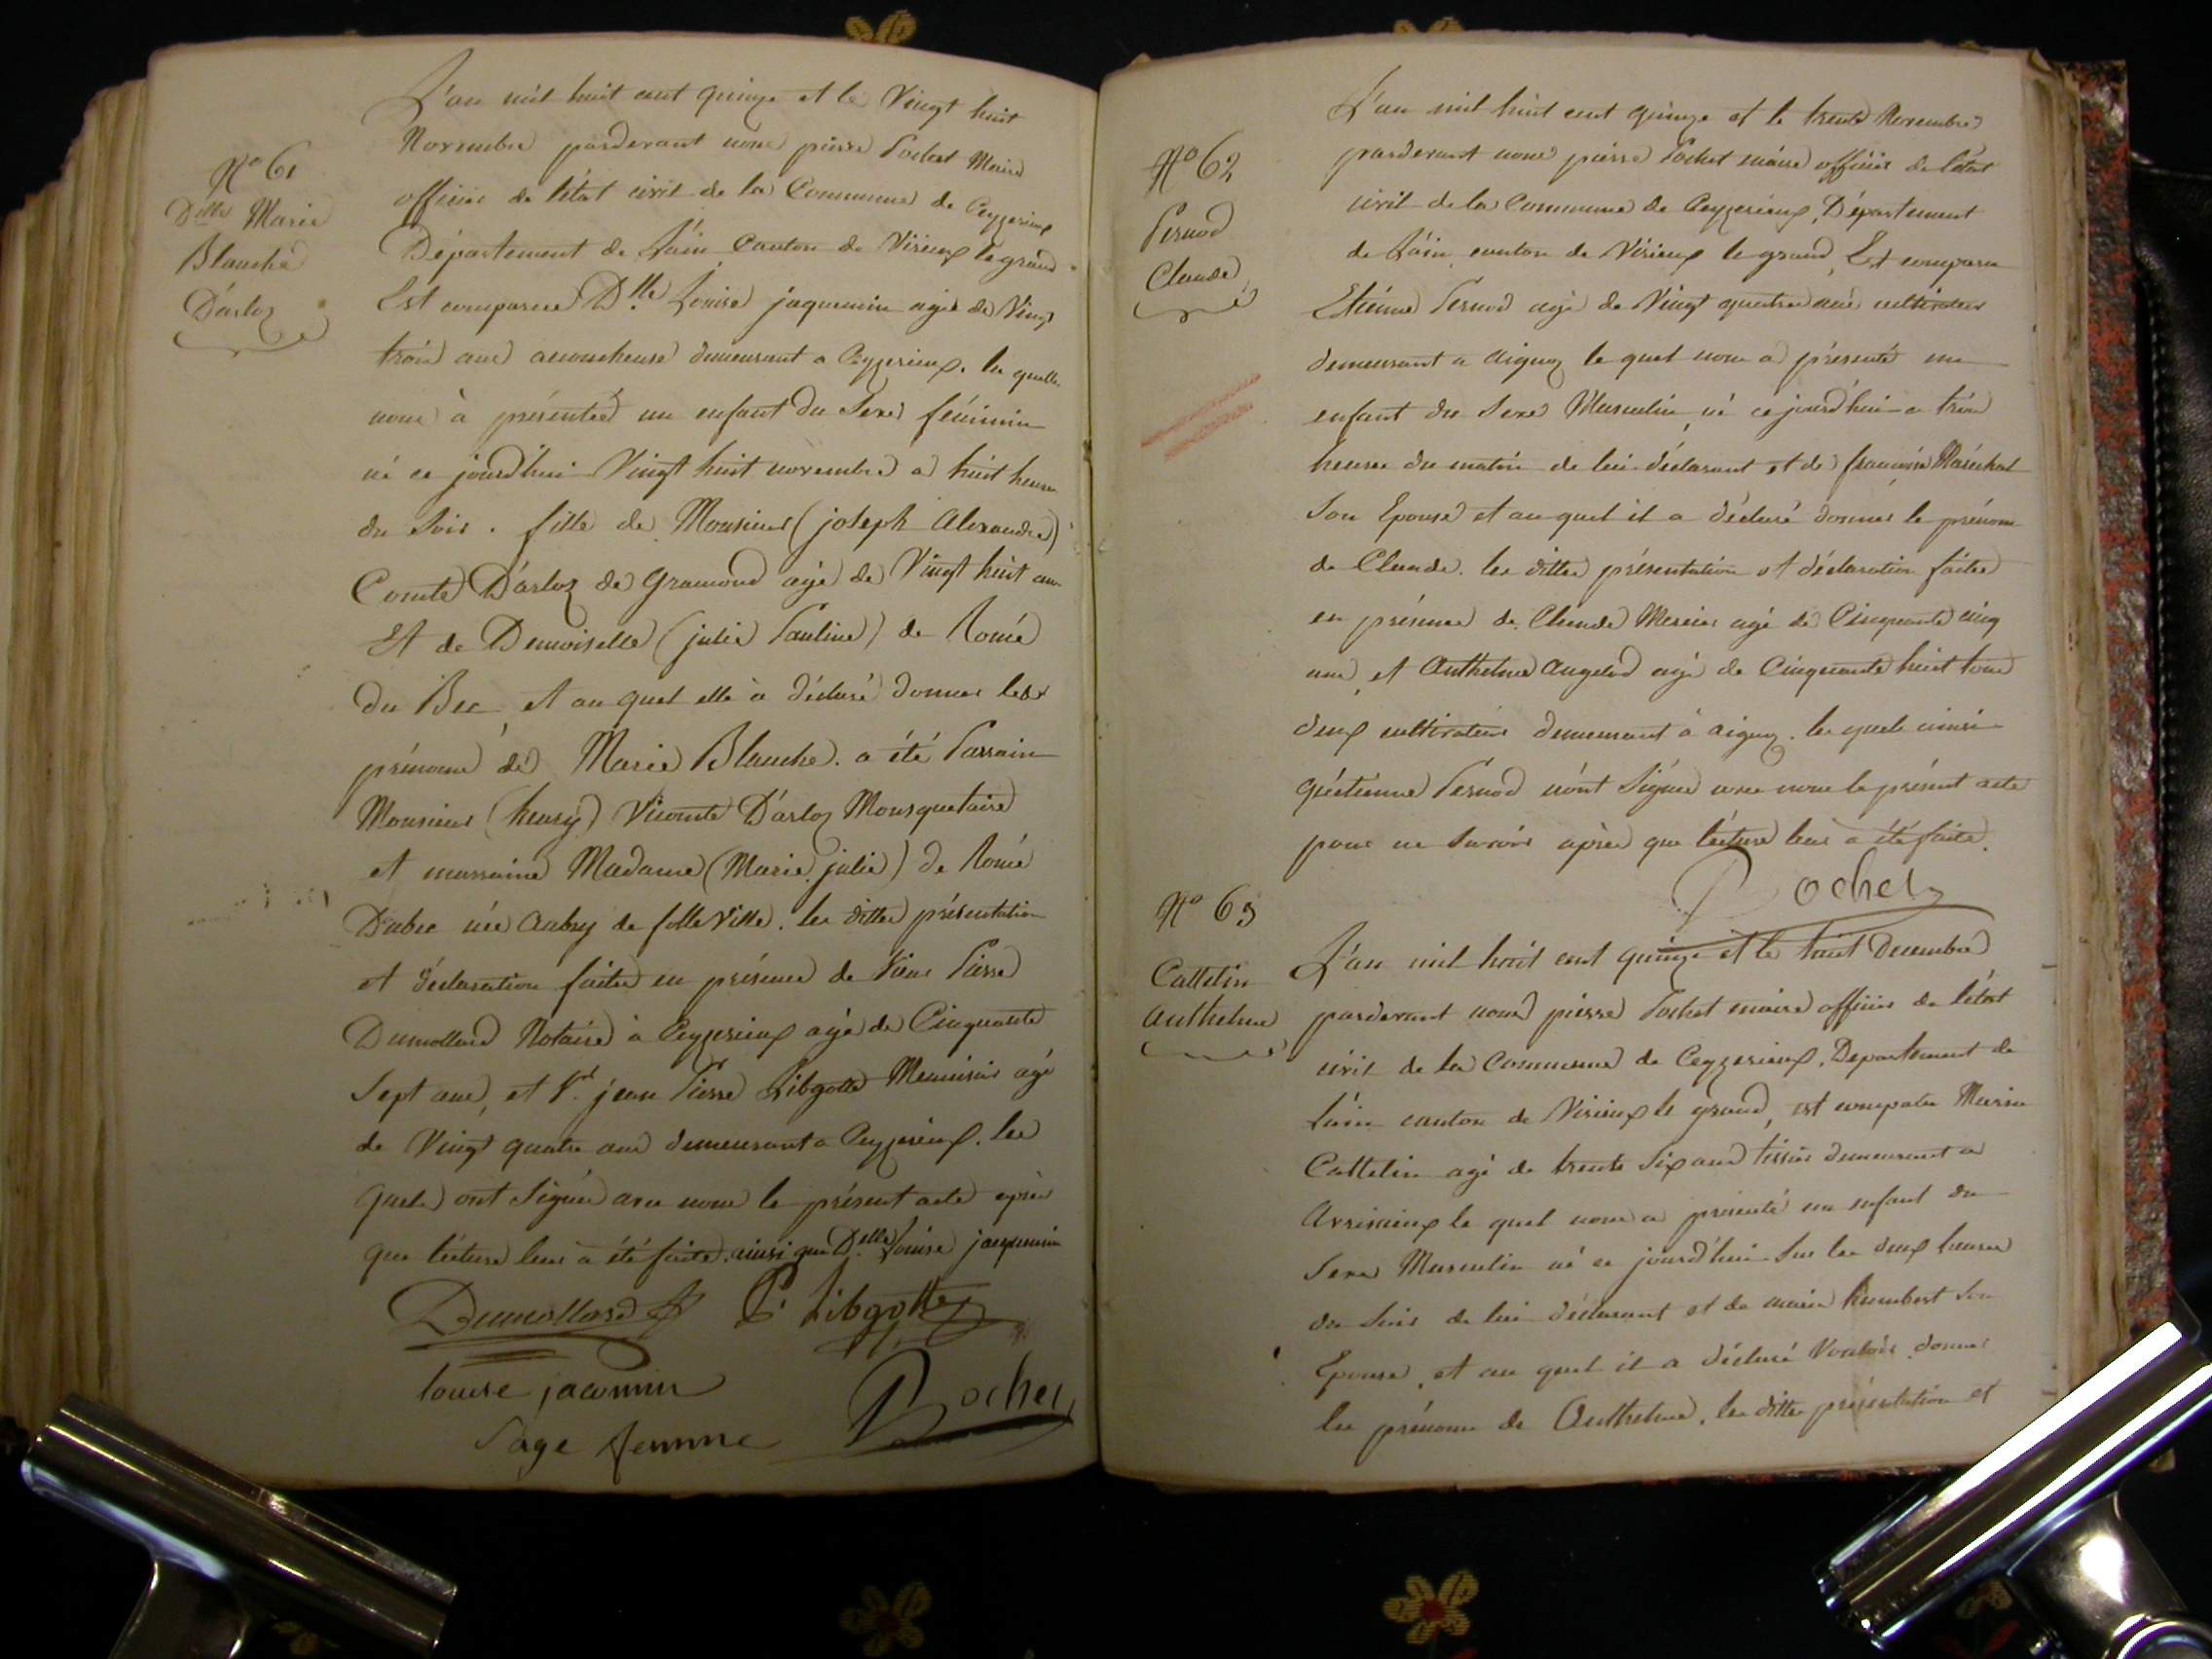 N° 61
Dlle Marie
Blanche
D'arloz
L'an mil huit cent quinze et le Vingt huit
Novembre pardevant nous pierre Pochet Maire
officier de l'état civil de la Commune de Ceyzerieux
Département de L'ain Canton de Virieux le grand
Est comparue Dlle Louise jaquemin agée de Vingt
trois ans acoucheuse demeurant a Ceyzerieux. la quelle
nous à présentée un enfant du Sexe féminin
né ce jourd'hui Vingt huit novembre a huit heures
du Soir. fille de Monsieur (joseph Alexandre)
Comte D'arloz de Gramond agé de Vingt huit ans
Et de Demoiselle (julie Pauline) de Romé
du Bec, et au quel elle à déclaré donner les
prénoms de Marie Blanche. a été Parrain
Monsieur (henry) Vicomte D'arloz Mousquetaire
et marraine Madame (Marie julie) de Romé
Dubec née Aubry de folleville. les dittes présentation
et déclaration faites en présence de Pierre
Dumollard Notaire à Ceyzerieux agé de Cinquante
Sept ans, et Sr. jean Pierre Libgotte Menuisier agé
de Vingt quatre ans demeurant a Ceyzerieux. les
quels ont Signés avec nous le présent acte après
que lecture leur a été faite. ainsi que Dlle Louise jaquemin
Dumollard P. Libgotte
louise jacomin
Sage femme Pochet
N° 62
Pernod
Claude
L'an mil huit cent quinze et le trente Novembre
pardevant nous pierre Pochet maire officier de l'état
civil de la Commune de Ceyzerieux, Département
de L'ain, canton de Virieux le grand, Est comparu
Etienne Pernod agé de Vingt quatre ans cultivateur
demeurant a aignoz le quel nous a présenté un
enfant du Sexe Masculin, né ce jourd'hui a trois
heures du matin de lui déclarant et de françoise Maréchal
Son Epouse et au quel il a déclaré donner le prénom
de Claude. les dittes présentation et déclaration faites
en présence de Claude Mercier agé de Cinquante cinq
ans, et Anthelme Angelod agé de Cinquante huit tous
deux cultivateurs demeurant à aignoz. les quels ainsi
qu'étienne Pernod n'ont Signés avec nous le présent acte
pour ne Savoir après que lecture leur a été faite.
Pochet
N° 63
Cattelin
Anthelme
L'an mil huit cent quinze et le huit Decembre
pardevant nous pierre Pochet maire officier de l'état
civil de la Commune de Ceyzerieux, Departement de
L'ain canton de Virieux le grand, est comparu
Cattelin agé de trente Six ans tissier demeurant a
Avrissieux le quel nous a présenté un enfant du
Sexe Masculin né ce jourd'hui Sur les deux heures
du Soir de lui déclarant et de marie humbert Son
Epouse, et au quel il a déclaré Vouloir donner
les prénoms de Anthelme. les dittes présentation et